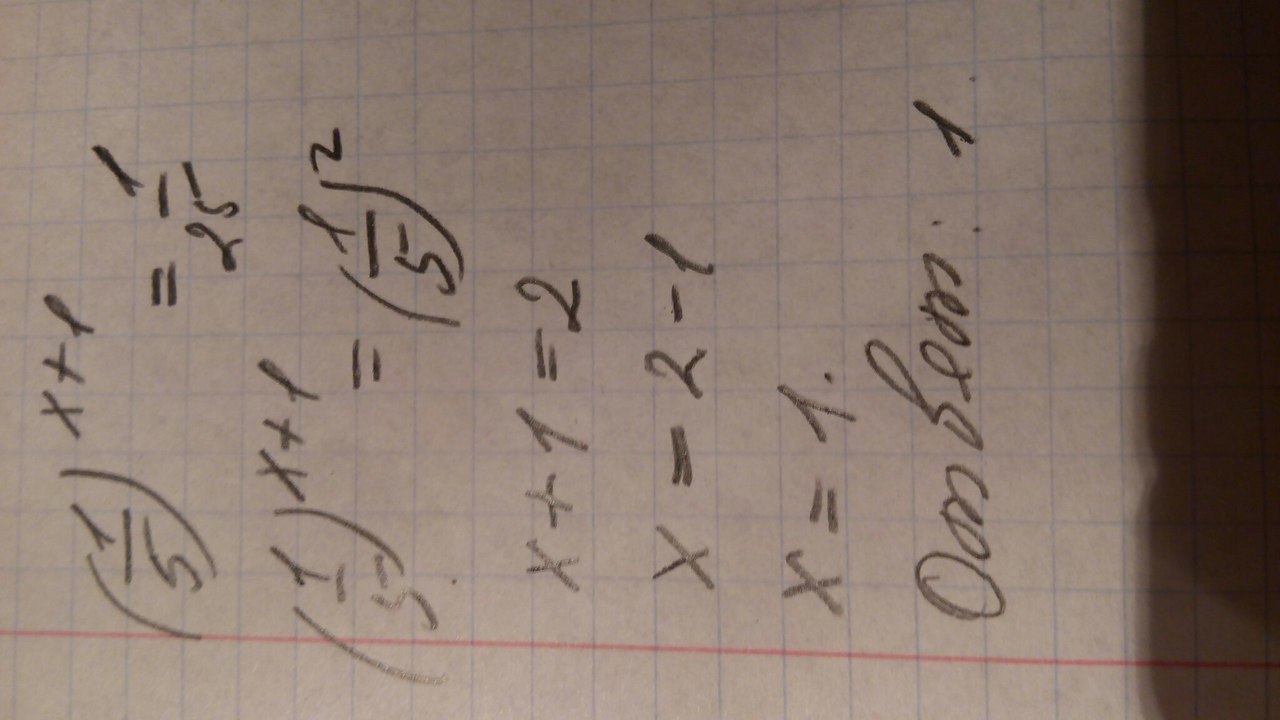 (1/5)^x+1 = 1/25
(1/5)^x+1 = (1/5)^2
x+1=2
x=2-1
x=1.
Ответ: 1